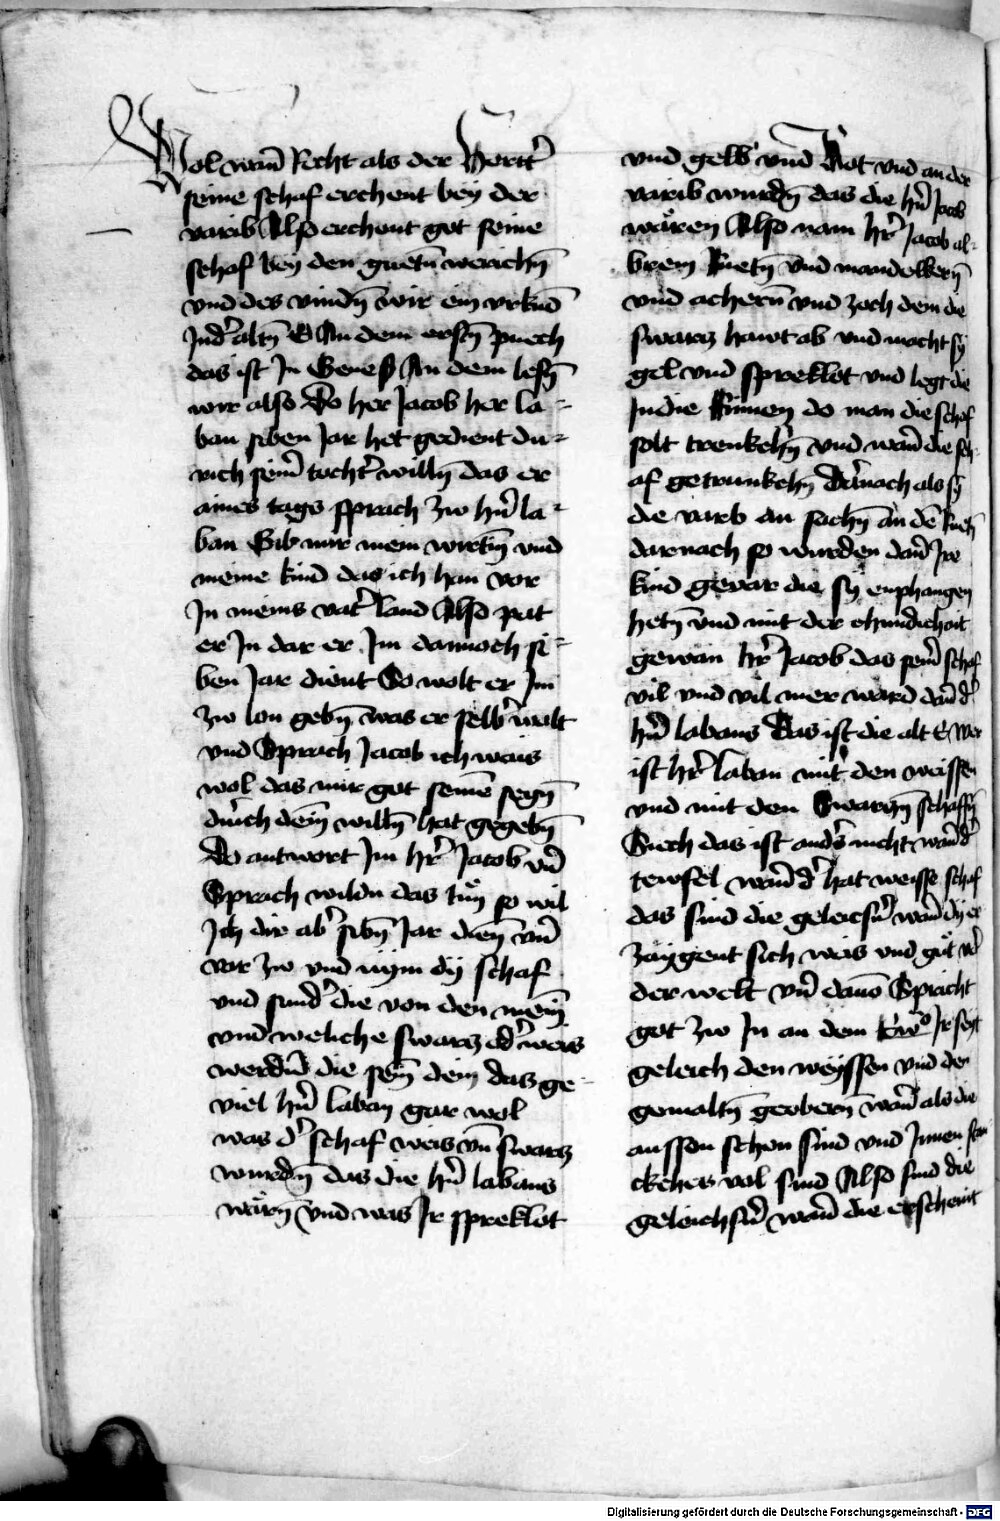 Wol wan̄ Recht als der Hertt̉
seine schaf erchent bey der
varib Also erchent got seine
schaf bey den guetn̄ werichn̄
vnd des vindn̄ wir ein vrkūd
Jnd̉ altn̄ E An dem erstn̄ puech
das ist Jn Genes̉ An dem lesn̄
wir also Do her Jacob her la-
ban siben Jar het gedient du-
rich sein̉ tocht̉ willn̄ das er
aines tags sprach zw hn̄ la-
ban Gib mir mein wirtin̄ vnd
meine kind das ich han vor
Jn meins vat̉ land Also pat
er Jn dar er Jm dannoch si-
ben Jar dient So wolt er Jm
zw lon gebn̄ was er selb̉ wolt
vnd Sprach Jacob ich wais
wol das mir got seinē segn̄
durch dein̄ willn̄ hat gegebn̄
Do antwort Jm hr̉ Jacob vn̄
Sprach wildu das tuͦn so wil
Jch dir ab̉ sibn̄ Jar dien̄ vn̄
var zw vnd nym dy schaf
vnd sund̉ die von den mein̄
vnd weliche swarcz od̉ weis
werdn̄ die sein̄ dein das ge-
viel hn̄ laban gar wol
was d̉ schaf weis vn̄ swarcz
wurdn̄ das die hn̄ labans
wärn̄ vnd was Jr spreklot
vnd gelb vnd Rot vnd an der
varib wurdn̄ das die hn̄ Jacob
wären Also nam hr̉ Jacob al-
brein Ruetn̄ vnd mandelbern̄
vnd achern̄ vnd zoch dem die
swarcz hawt ab vnd macht sy
gel vnd spreklot vnd legt die
Jn die Rinnen do man die schof
solt trenkehn̄ vnd wan̄ die sch-
af getrunkehn̄ Darnach als sy
die varb an sachn̄ an dē Ruetn̄
darnach so wurden dan̄ Jre
kind gevar die sy emphangen
hetn̄ vnd mit der chundichait
gewan hr̉ Jacob das sein̉ schof
vil vnd vil mer ward dan̄ d̉
hn̄ labans Das ist die alt E Wer
ist hr̉ laban mit den weissen
vnd mit den Swarczn̄ schaffn̄
Siech das ist and̉s nicht wan̄ d̉
tewfel wan̄ d̉ hat weisse schaf
das sind die geleichsn̉ wan̄ dy er
zaygent sich weis vnd guͦt vor
der welt vn̄ dauō Spricht
got zw Jn an dem ewͦ Jr seyt
geleich den weyssen vnd den
gemaltn̄ grebern̄ wan̄ als die
aussen schon sind vnd Jnnen
vol sind Also sind die
geleichsn̉ wan̄ die erscheint